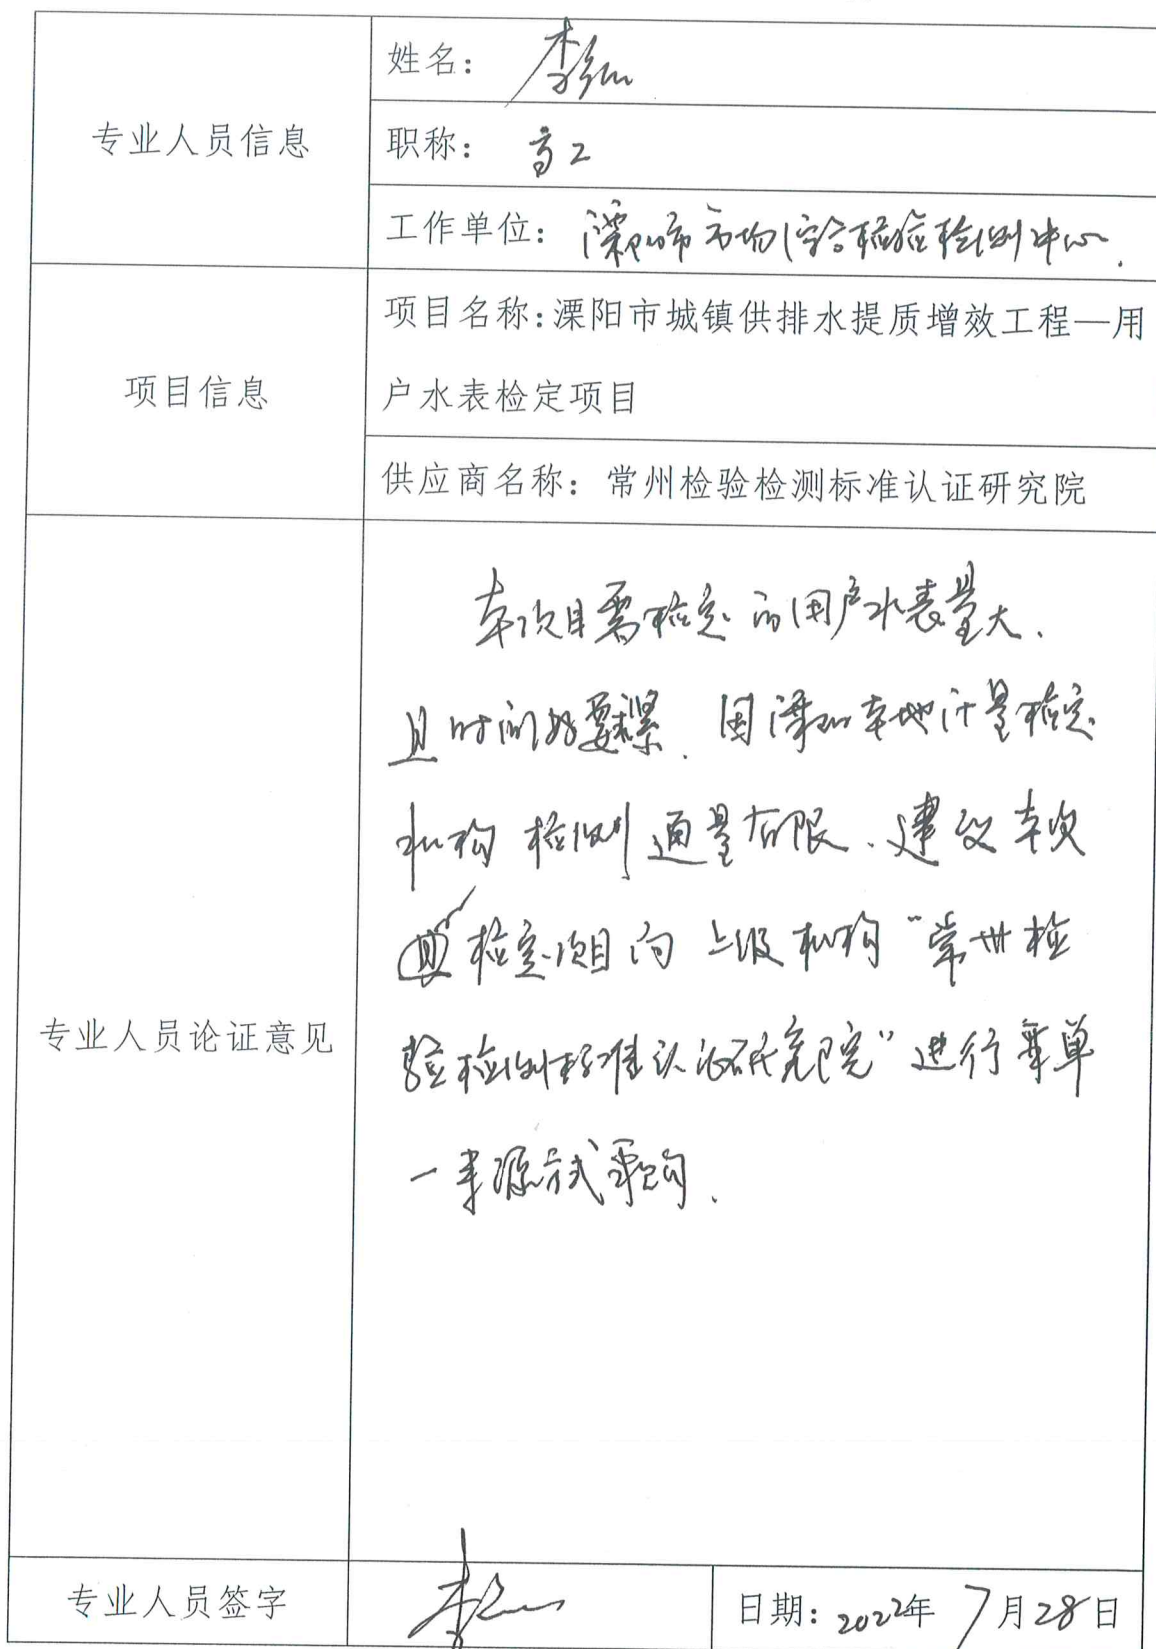 专业人员信息
姓名: 李
职称: 高工
工作单位: 溧阳市市场综合检验检测中心.
项目信息
项目名称:溧阳市城镇供排水提质增效工程—用
户水表检定项目
供应商名称: 常州检验检测标准认证研究院
专业人员论证意见
本项目需检定的用户水表量大、
且时间要紧、因溧阳本地计量检定
机构检测通量有限、建议本次
检定项目向上级机构“常州检
验检测标准认证研究院”进行单
一来源方式采购.
专业人员签字
李
日期: 2022年7月28日